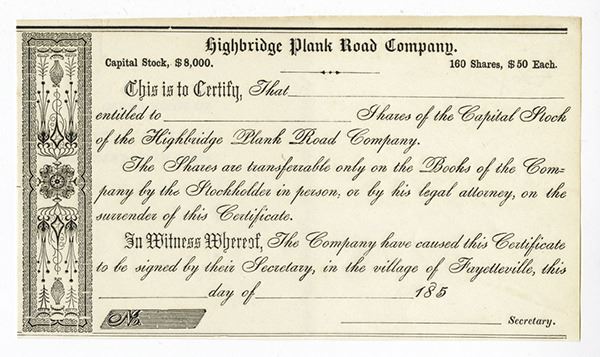 Highbridge Plank Road Company.
Capital Stock, $8,000. 160 Shares, $50 Each.
This is to Certify, That
entitled to Shares of the Capital Stock
of the Highbridge Plank Road Company.
The Shares are transferrable only on the Books of the Com=
pany by the Stockholder in person, or by his legal attorney, on the
surrender of this Certificate.
In Witness Whereof, The Company have caused this Certificate
to be signed by their Secretary, in the village of Fayetteville, this
day of 185
No. Secretary.